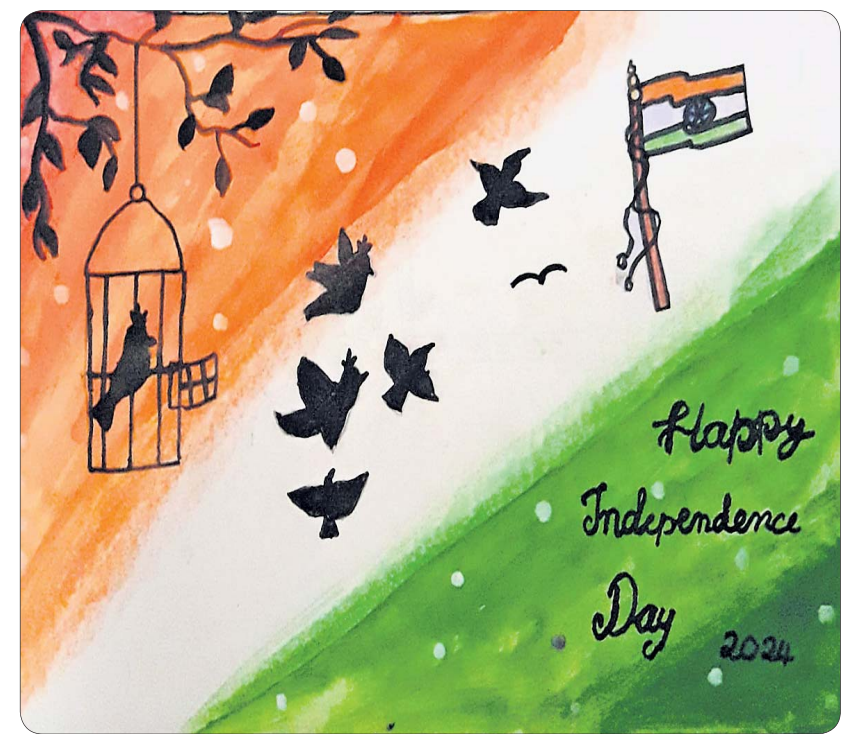 Happy
Independence
Day
2024